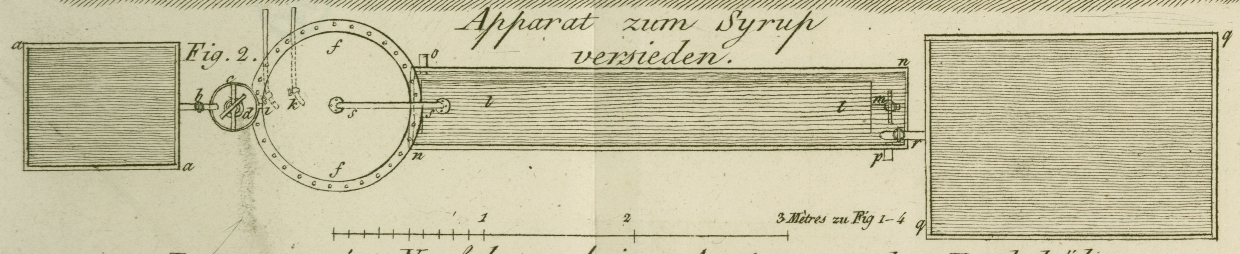 Apparat zum Syrup
versieden.
Fig. 2.
a
a
b
c
d
i
k
f
f
s
s
o
l
n
n
t
m
r
p
q
q
1 2 3 Mètres zu Fig 1-4